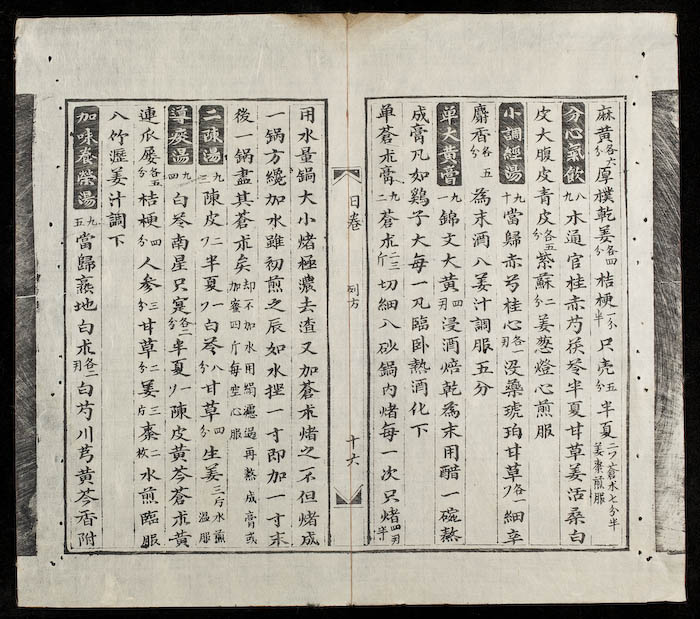 麻黄各六分厚樸乾姜各四分桔梗一分半只壳五分半夏二刀蒼朮七分半姜棗煎服
分心氣飲八九木通官桂赤芍茯苓半夏甘草姜活桑白
皮大腹皮青皮各五分紫蘇二分姜葱燈心煎服
小調經湯九十當歸赤芍桂心各一刃没藥琥珀甘草各一刀細辛
麝香各五分為末酒入姜汁調服五分
單大黄膏九一錦文大黄四刃浸酒焙乾為末用醋一碗熬
成膏凡如鷄子大每一凡臨卧熱酒化下
单蒼朮膏九二蒼朮二三斤切細入砂鍋内煮每一次只煮四刃半
日巻
列方
十六
用水量鍋大小煮極濃去渣又加蒼朮煮之不但煮成
一鍋方纔加水雖初煎之辰如水挫一寸即加一寸末
後一鍋盡其蒼朮矣却不加水用綢濾過再熬成膏或加蜜四斤每空心服
二陳湯九三陳皮刀二半夏刀一白苓八分甘草四分生姜三片水煎温服
導痰湯九四白苓南星只寔各二分半夏刀一陳皮黄芩蒼朮黄
連瓜蔞各五分桔梗四分人參三分甘草二分姜三片棗二枚水煎臨服
入竹瀝姜汁調下
加味養榮湯九五當歸熟地白朮各二刃白芍川芎黄芩香附